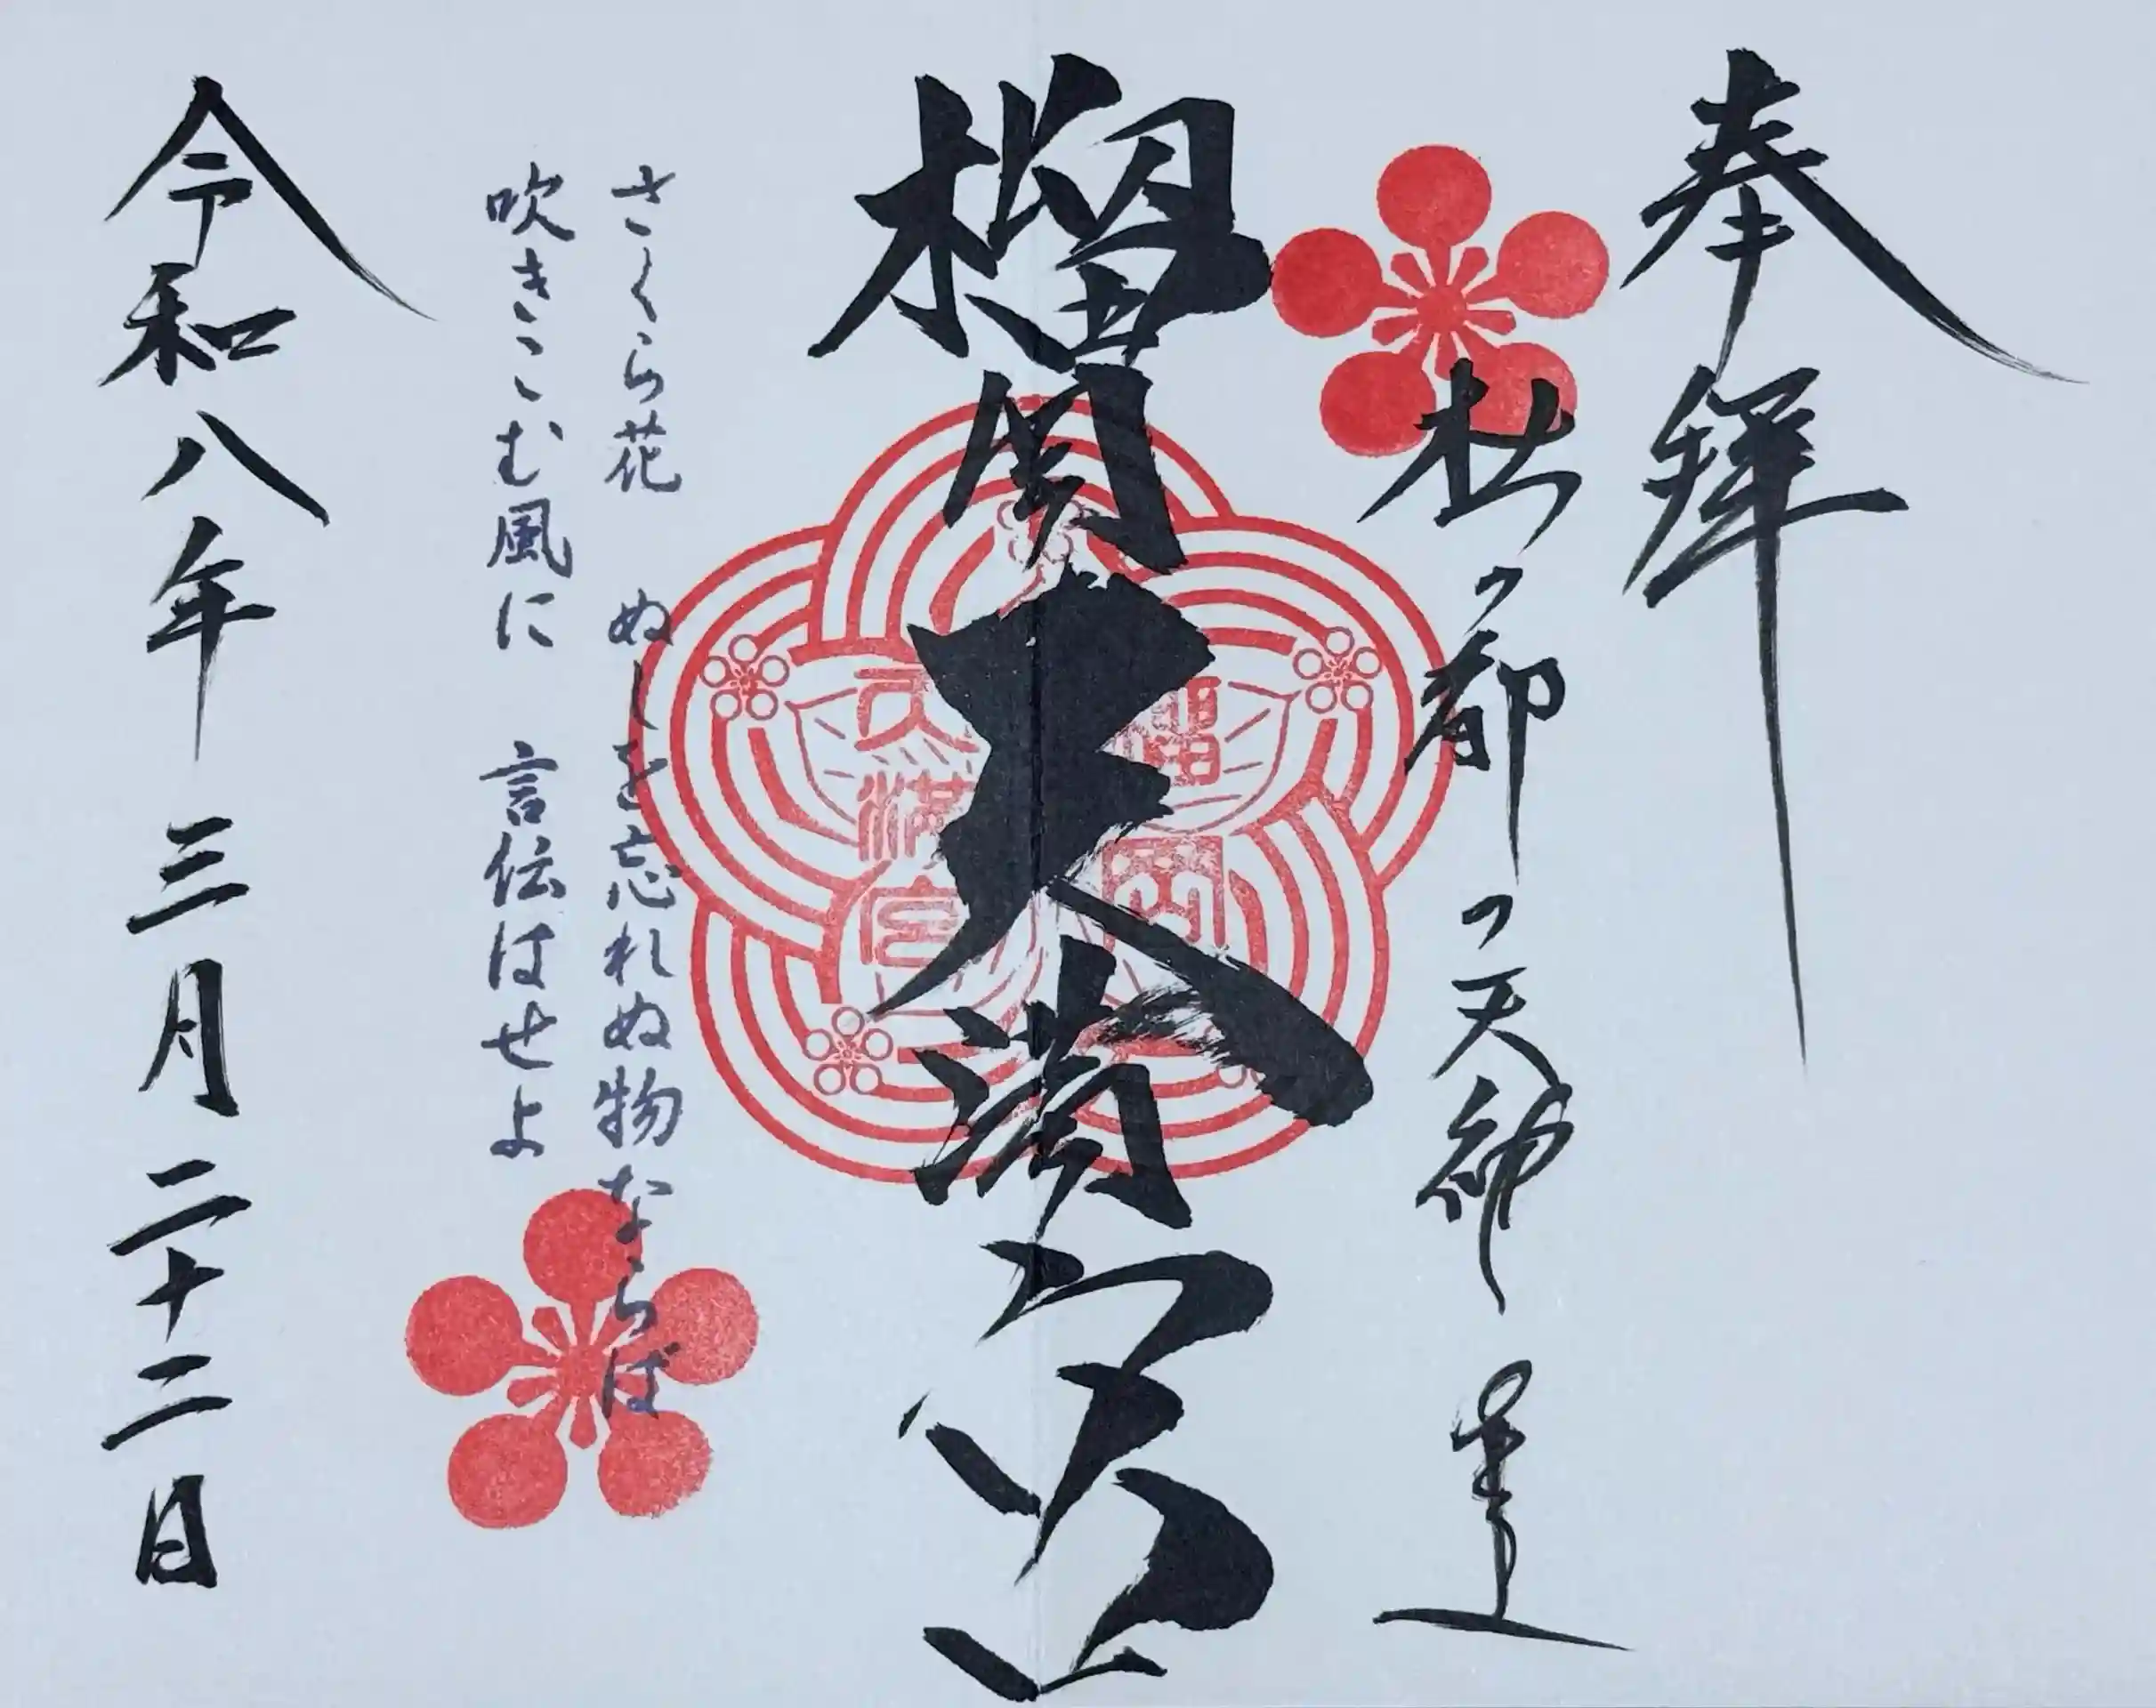 奉拝
杜ノ都ノ天神
榴岡天満宮
榴岡
天満宮
さくら花 ぬしを忘れぬ物ならば
吹きこむ風に 言伝はせよ
令和八年 三月二十二日